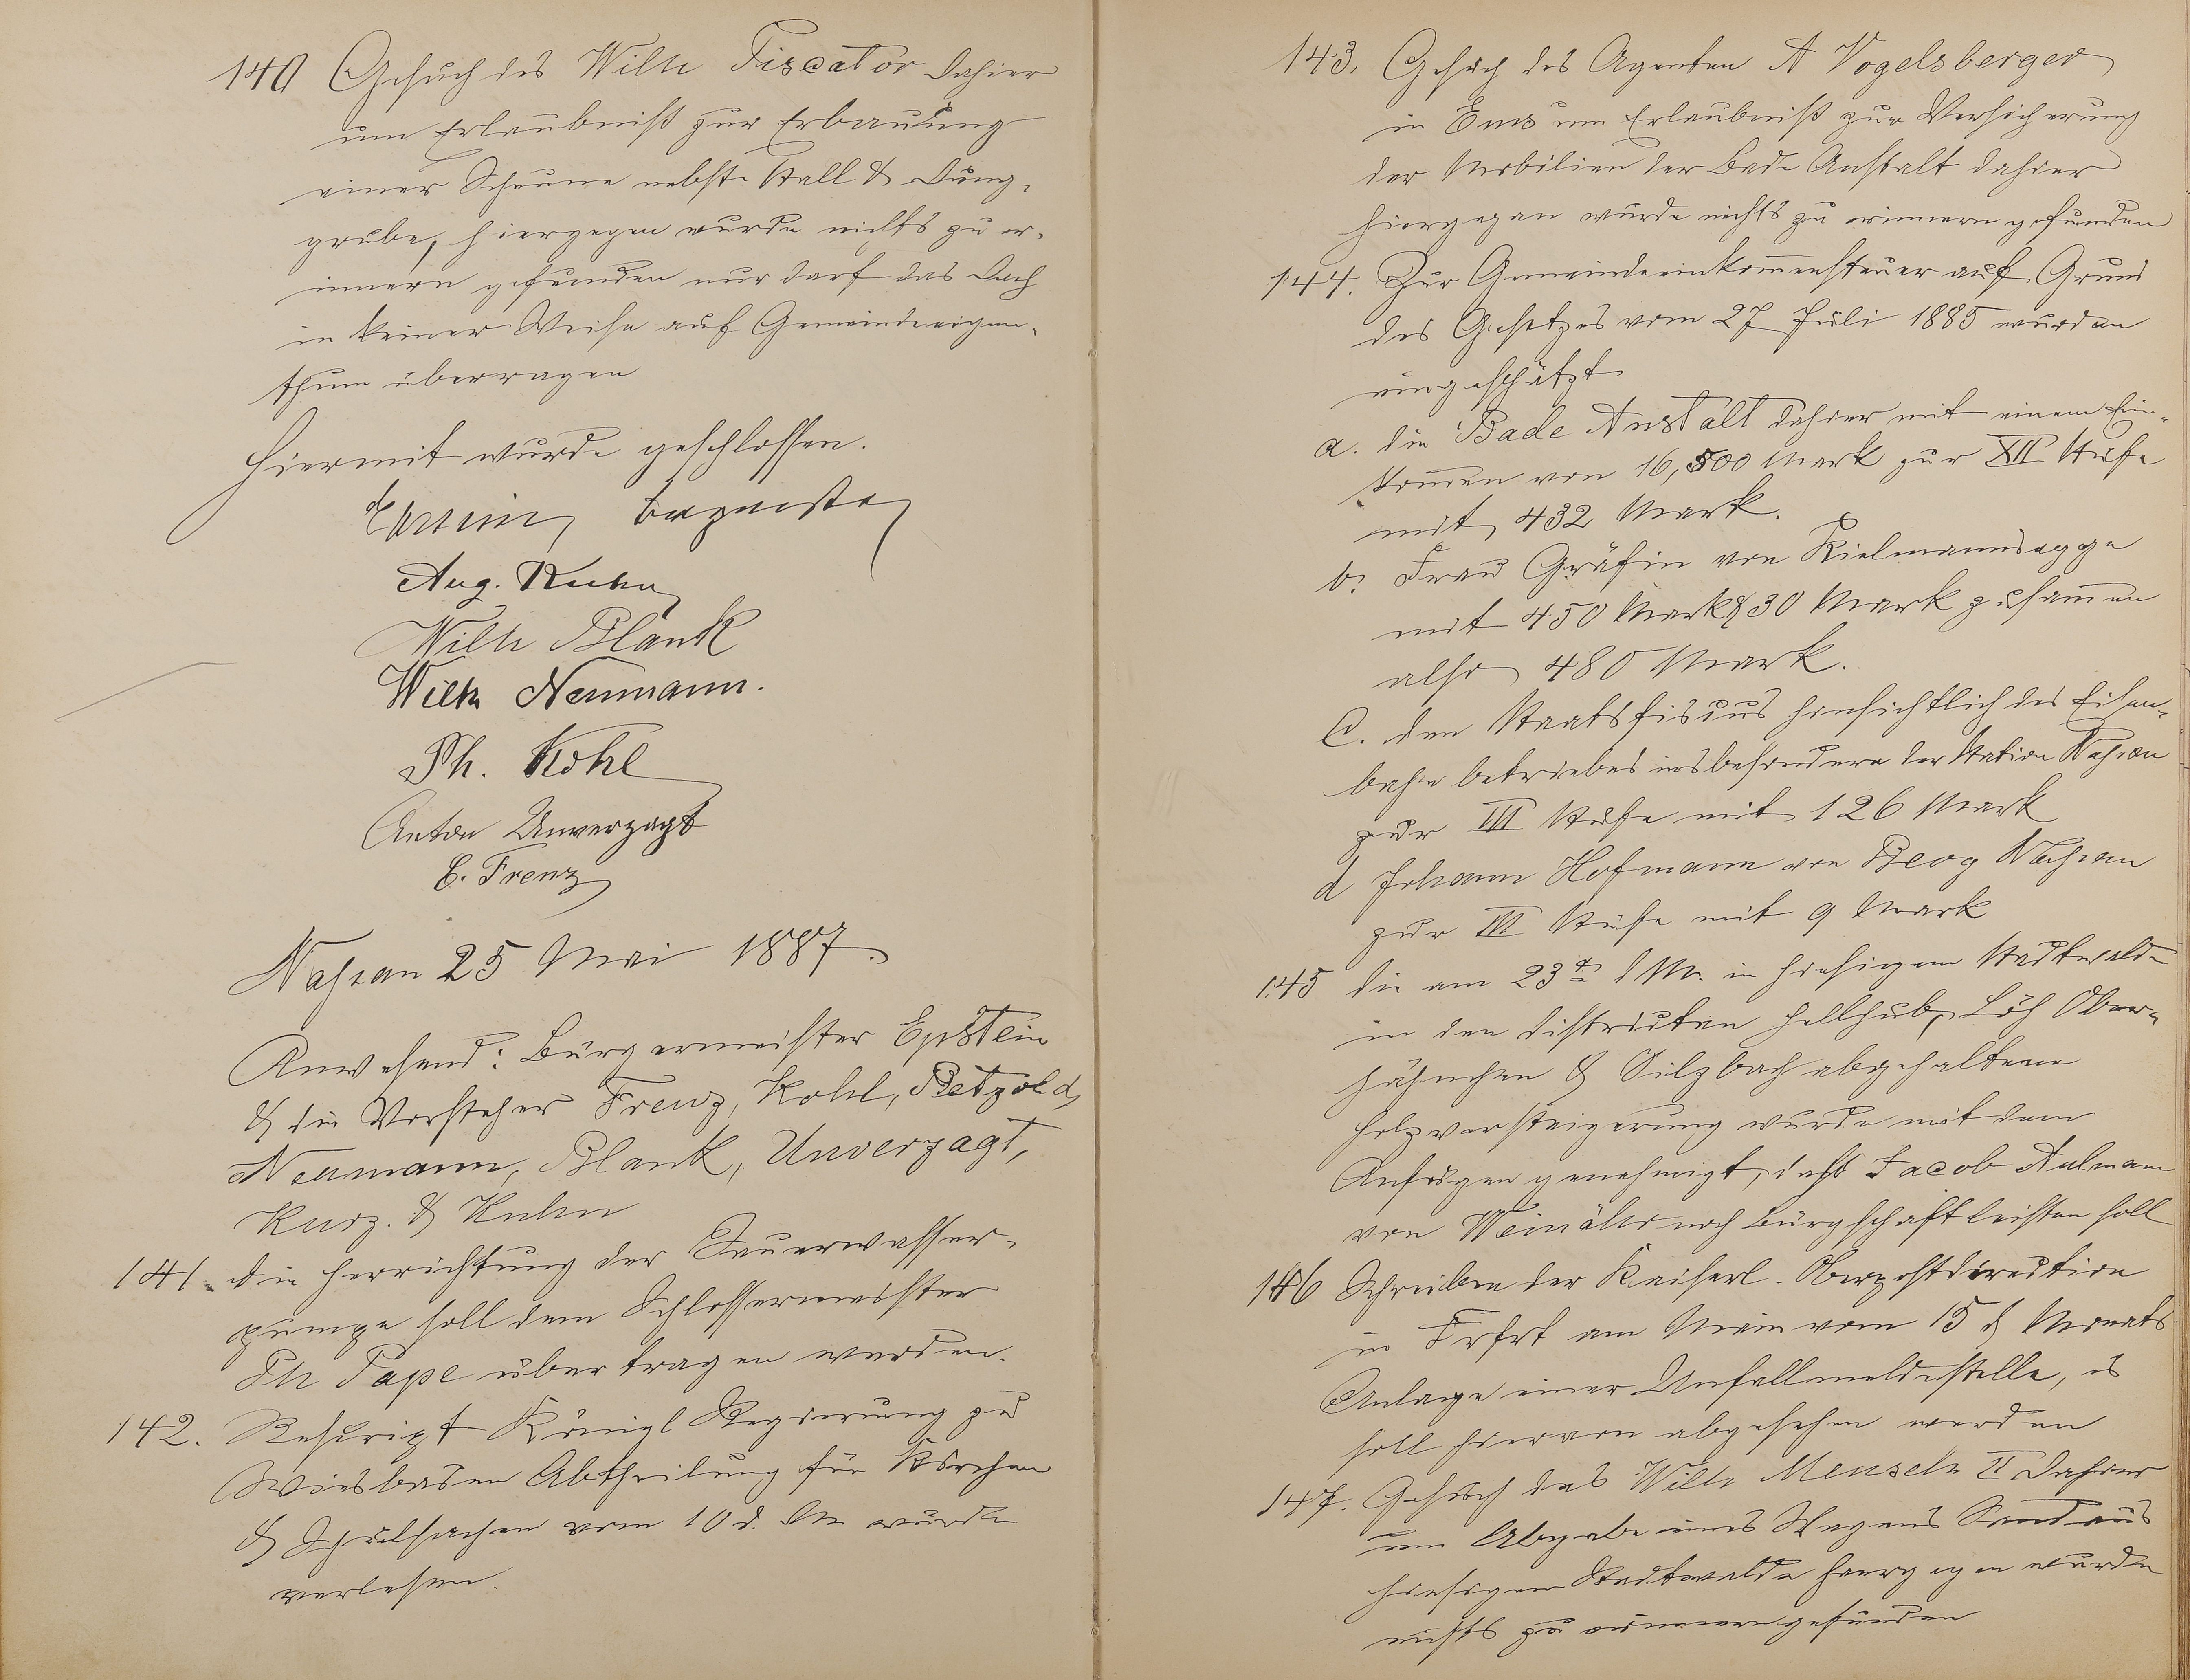 140 Gesuch des Wilh Piscator dahier
um Erlaubniß zur Erbauung
einer Scheune nebst Stall & Dung-
grube, hiergegen wurde nichts zu er-
innern gefunden nur darf das Dach
in keiner Weise auf Gemeindeeigen-
thum überragen
Hiermit wurde geschlossen.
Bürgermstr
Aug. Kuhn
Wilh Blank
Wilh Neumann.
Ph. Kohl
Anton Unverzagt
C. Frenz
Nassau 25 Mai 1887.
Anwesend: Bürgermeister Epstein
& die Vorsteher Frenz, Kohl, Petzold,
Neumann, Blank, Unverzagt,
Kurz. & Kuhn
141. die Herrichtung der Sauerwasser-
pumpe soll dem Schlossermeister
Ph Pape übertragen werden.
142. Rescript Königl Regierung zu
Wiesbaden Abtheilung für Kirchen
& Schulsachen vom 10 d. Mts wurde
verlesen.
143. Gesuch des Agenten A Vogelsberger
in Ems um Erlaubniß zur Versicherung
der Mobilien der Bade Anstalt dahier
hiergegen wurde nichts zu erinnern gefunden
144. Zur Gemeindeeinkom̅ensteuer auf Grund
des Gesetzes vom 27 Juli 1885 wurden
eingeschätzt
a. die Bade Anstalt dahier mit einem Ein-
kom̅en von 16,500 Mark zur XII Stufe
mit 432 Mark.
b. Frau Gräfin von Kielmannsegge
mit 450 Mark & 30 Mark zusam̅en
also 480 Mark.
C. den Staatsfiscus hinsichtlich des Eisen-
bahn betriebes insbesondere der Station Nassau
zur III Stufe mit 126 Mark
d Johann Hofmann von Berg Nassau
zur III Stufe mit 9 Mark
145 die am 23t d M. in hiesigem Stadtwalde
in den Distrikten Hellhub, Löh Ober-
hähnchen & Silzbach abgehaltene
Holzversteigerung wurde mit dem
Anfügen genehmigt, daß Jacob Aulmann
von Weinähr noch Bürgschaft leisten soll
146 Schreiben der Kaiserl. Oberpostdirection
in Frkft am Main vom 15 d Monats
Anlage einer Unfallmeldestelle, es
soll hiervon abgesehen werden
147. Gesuch des Wilh Mensch II dahier
um Abgabe eines Wagens Sand aus
hiesigem Stadtwalde hiergegen wurde
nichts zu erinnern gefunden